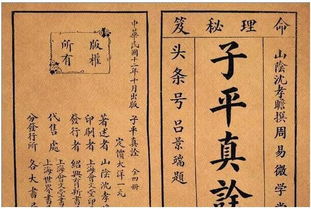 命理秘笈
山陰沈孝瞻撰周易微学堂
子平真詮
头条号吕景瑞題
中華民國十二年十月出版
版權
所有
子平真詮 全四冊
定價大洋一元
著述者 山陰沈孝瞻
印刷者
發行者
代售者
分發行所 各大書